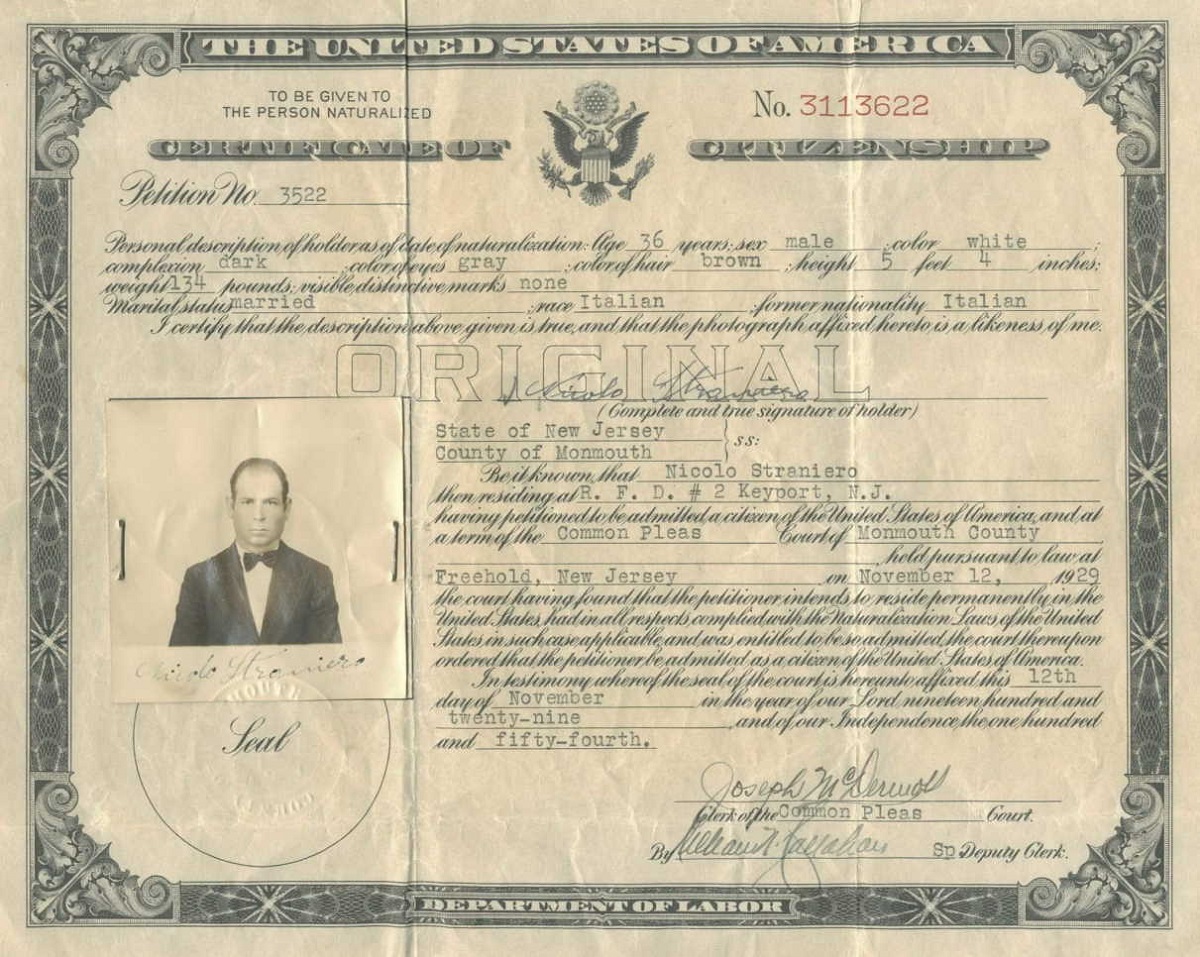 THE UNITED STATES OF AMERICA
TO BE GIVEN TO
THE PERSON NATURALIZED
No. 3113622
CERTIFICATE OF CITIZENSHIP
Petition No. 3522
Personal description of holder as of date of naturalization: Age 36 years; sex male ; color white ;
complexion dark ; color of eyes gray ; color of hair brown ; height 5 feet 4 inches;
weight 134 pounds; visible distinctive marks none
Marital status married ; race Italian ; former nationality Italian
I certify that the description above given is true, and that the photograph affixed hereto is a likeness of me.
ORIGINAL
Nicolo Straniero
(Complete and true signature of holder)
State of New Jersey
County of Monmouth } ss:
Be it known, that Nicolo Straniero
then residing at R. F. D. # 2 Keyport, N.J.
having petitioned to be admitted a citizen of the United States of America, and at
a term of the Common Pleas Court of Monmouth County
held pursuant to law at
Freehold, New Jersey on November 12, 1929
the court having found that the petitioner intends to reside permanently in the
United States, had in all respects complied with the Naturalization Laws of the United
States in such case applicable, and was entitled to be so admitted, the court thereupon
ordered that the petitioner be admitted as a citizen of the United States of America.
In testimony whereof the seal of the court is hereunto affixed this 12th
day of November in the year of our Lord nineteen hundred and
twenty-nine , and of our Independence the one hundred
and fifty-fourth.
Nicolo Straniero
Seal
Joseph McDermott
Clerk of the Common Pleas Court.
By William H. Callahan Sp. Deputy Clerk.
DEPARTMENT OF LABOR